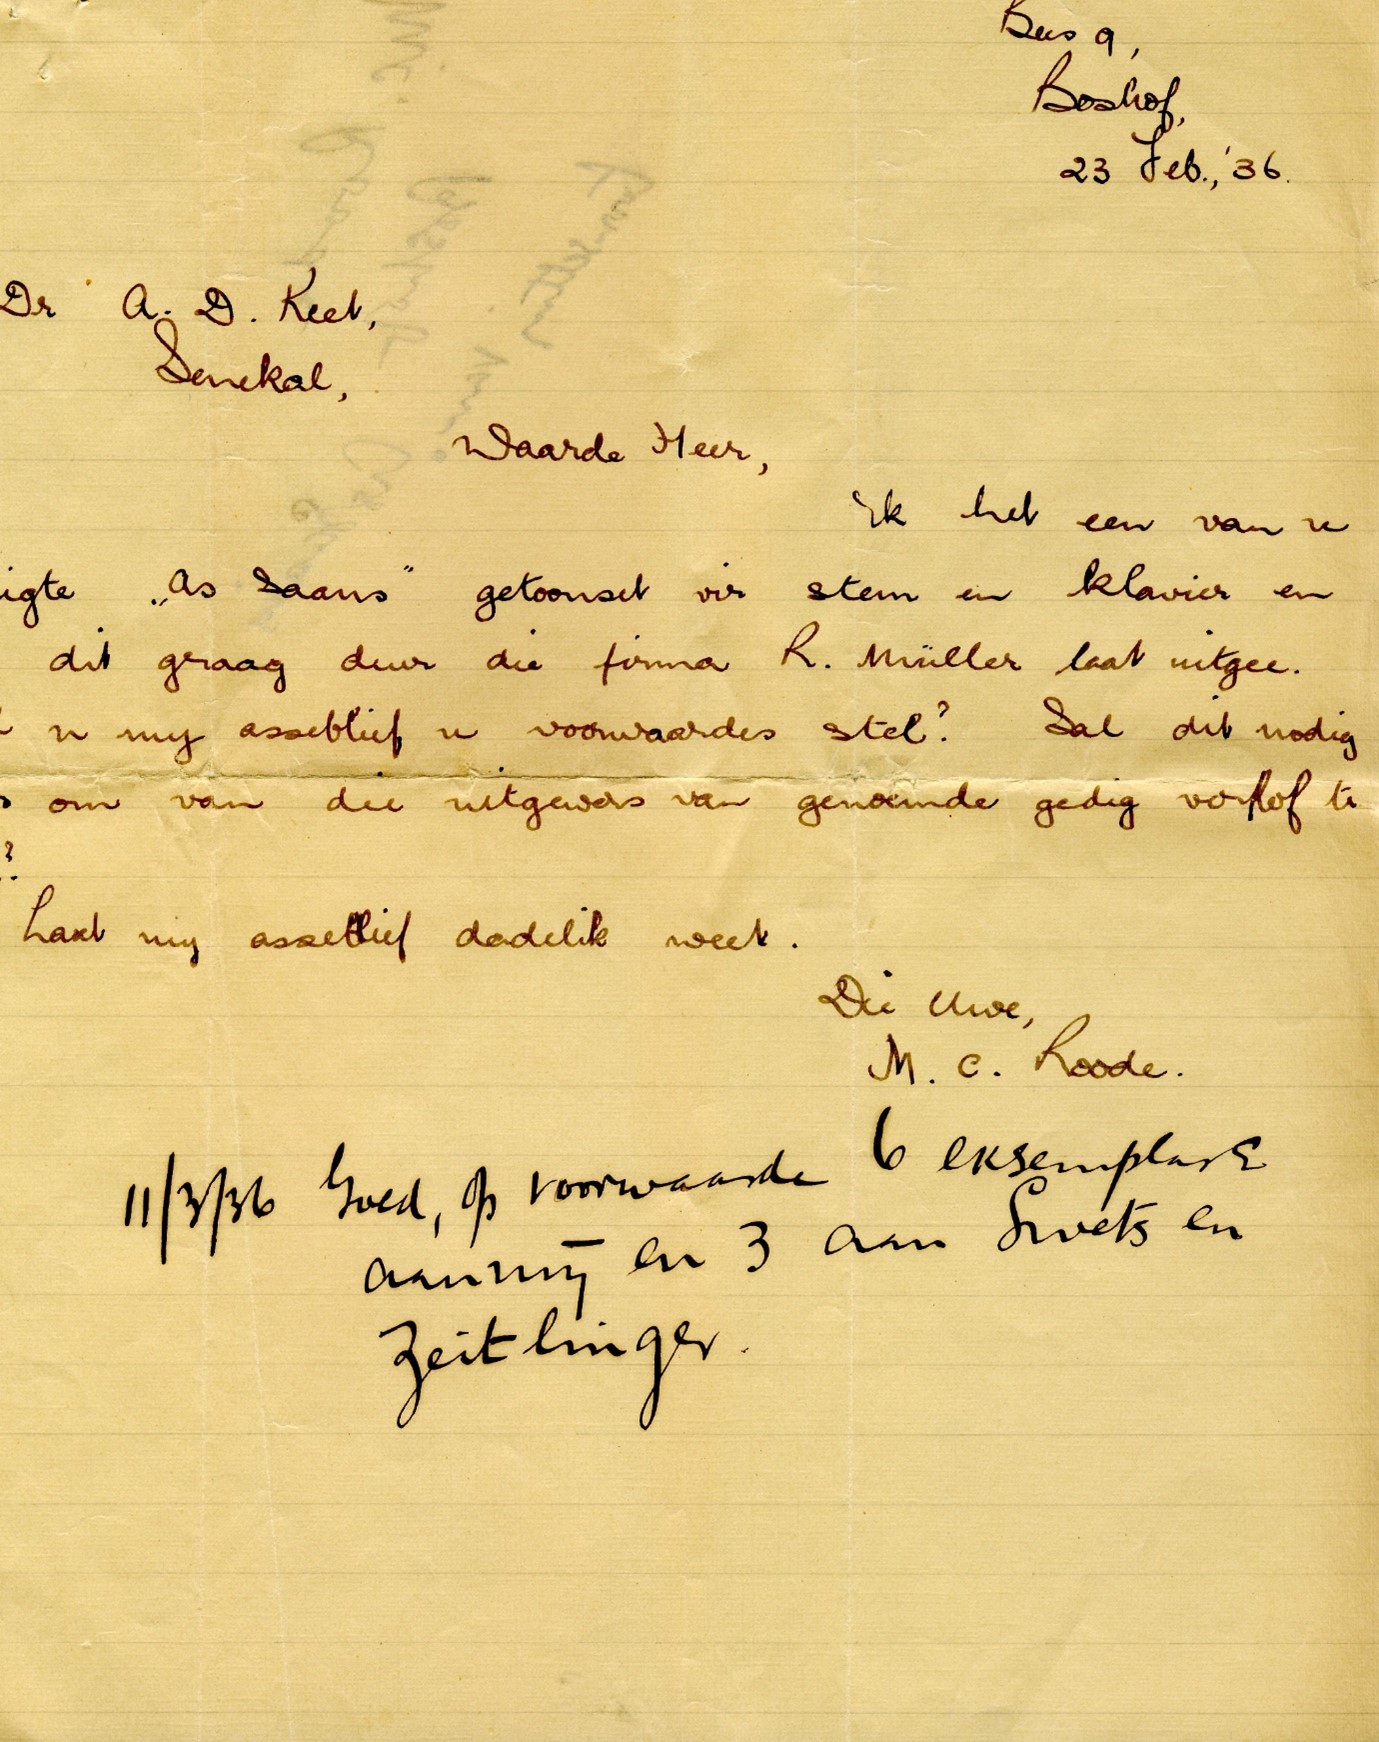 Bus 9,
Boshof,
23 Feb., '36.
Dr A. D. Keet,
Senekal,
Waarde Heer,
Ek het een van u
igte „As Saans" getoonset vir stem en klavier en
dit graag deur die firma R. Müller laat uitgee.
u my asseblief u voorwaardes stel? Sal dit nodig
s om van die uitgewers van genoemde gedig verlof te
?
Laat my asseblief dadelik weet.
Die Uwe,
M. C. Roode.
11/3/36 Goed, op voorwaarde 6 eksemplare
aan my en 3 aan Swets en
Zeitlinger.